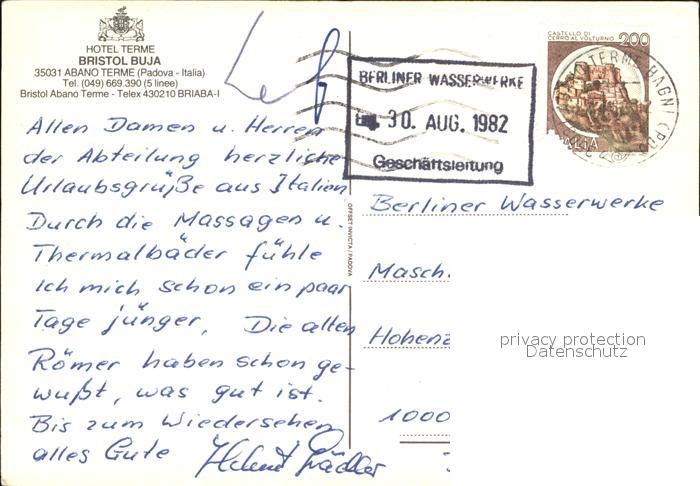 HOTEL TERME
BRISTOL BUJA
35031 ABANO TERME (Padova - Italia)
Tel. (049) 669.390 (5 linee)
Bristol Abano Terme - Telex 430210 BRIABA-I
Allen Damen u. Herren
der Abteilung herzliche
Urlaubsgrüße aus Italien
Durch die Massagen u.
Thermalbäder fühle
ich mich schon ein paar
Tage jünger. Die alten
Römer haben schon ge-
wußt, was gut ist.
Bis zum Wiedersehen
alles Gute Helmut
OFFSET INVICTA - PADOVA
BERLINER WASSERWERKE
30. AUG. 1982
Geschäftsleitung
CASTELLO DI
CERRO AL VOLTURNO 200
ITALIA
TERME BAGNI
Berliner Wasserwerke
Masch.
Hohenz
1000
privacy protection
Datenschutz